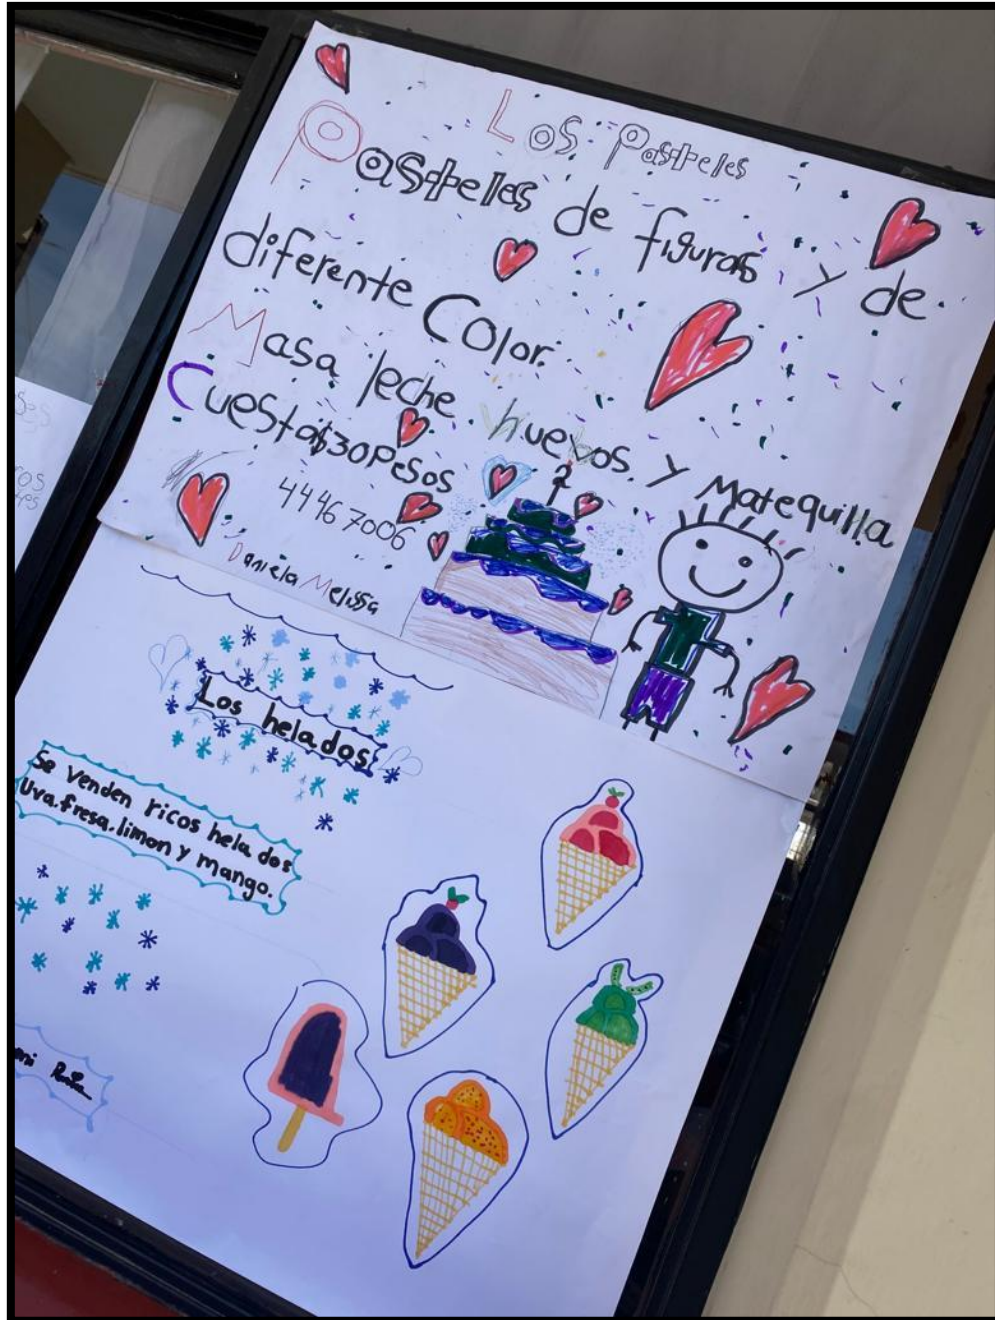 Los Pasteles
Pasteles de figuras y de
diferente Color.
Masa leche huevos. y Matequilla
Cuesta $30 Pesos
44467006
Daniela Melissa
Los helados
Se venden ricos helados
Uva.fresa.limon y mango.